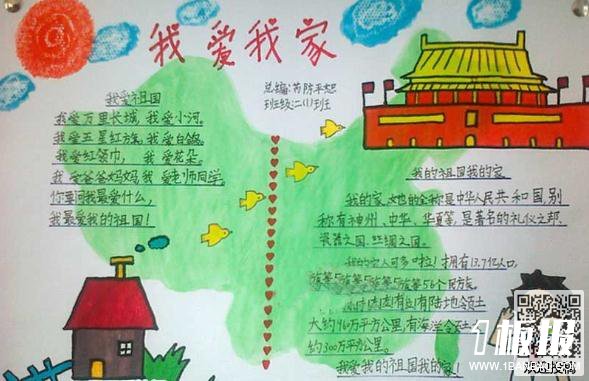 我爱我家
我爱祖国
我爱万里长城，我爱小河。
我爱五星红旗，我爱白鸽。
我爱红领巾，我爱花朵。
我爱爸爸妈妈我爱老师同学。
你要问我最爱什么，
我最爱我的祖国！
总编：芮陈平
班级：二(1)班
我的祖国我的家
我的家，她的全称是中华人民共和国，别
称有神州、中华、华夏等，是著名的礼仪之邦、
瓷器之国、丝绸之国。
我的家人可多啦！拥有13.7亿人口，
56个民族。
有陆地领土
大约960万平方公里，有海洋
约300万平方公里。
我爱我的祖国我的家！
1板报
WWW.1BANBAO.COM